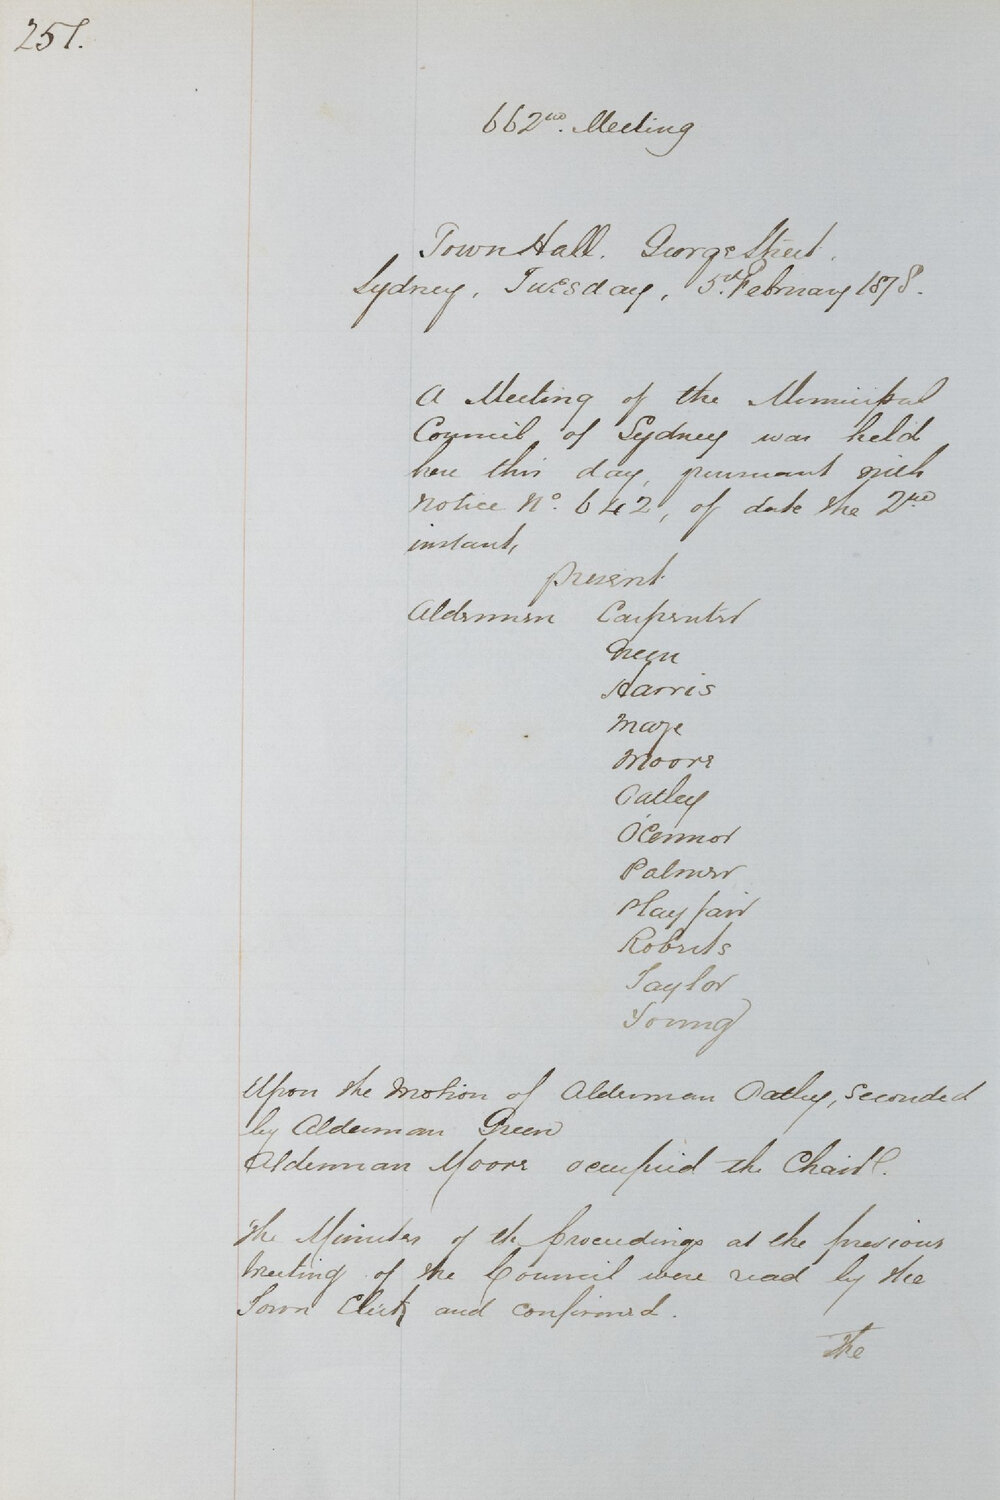 257.
662nd. Meeting
Town Hall. George Street.
Sydney, Tuesday, 5th February 1878.
A Meeting of the Municipal
Council of Sydney was held
here this day, pursuant with
Notice No. 642, of date the 2nd
instant,
present
Aldermen Carpenter
Green
Harris
Maze
Moore
Oatley
O'Connor
Palmer
Playfair
Roberts
Taylor
Young
Upon the Motion of Alderman Oatley, seconded
by Alderman Green
Alderman Moore occupied the Chair.
The Minutes of the proceedings at the previous
Meeting of the Council were read by the
Town Clerk and confirmed.
The